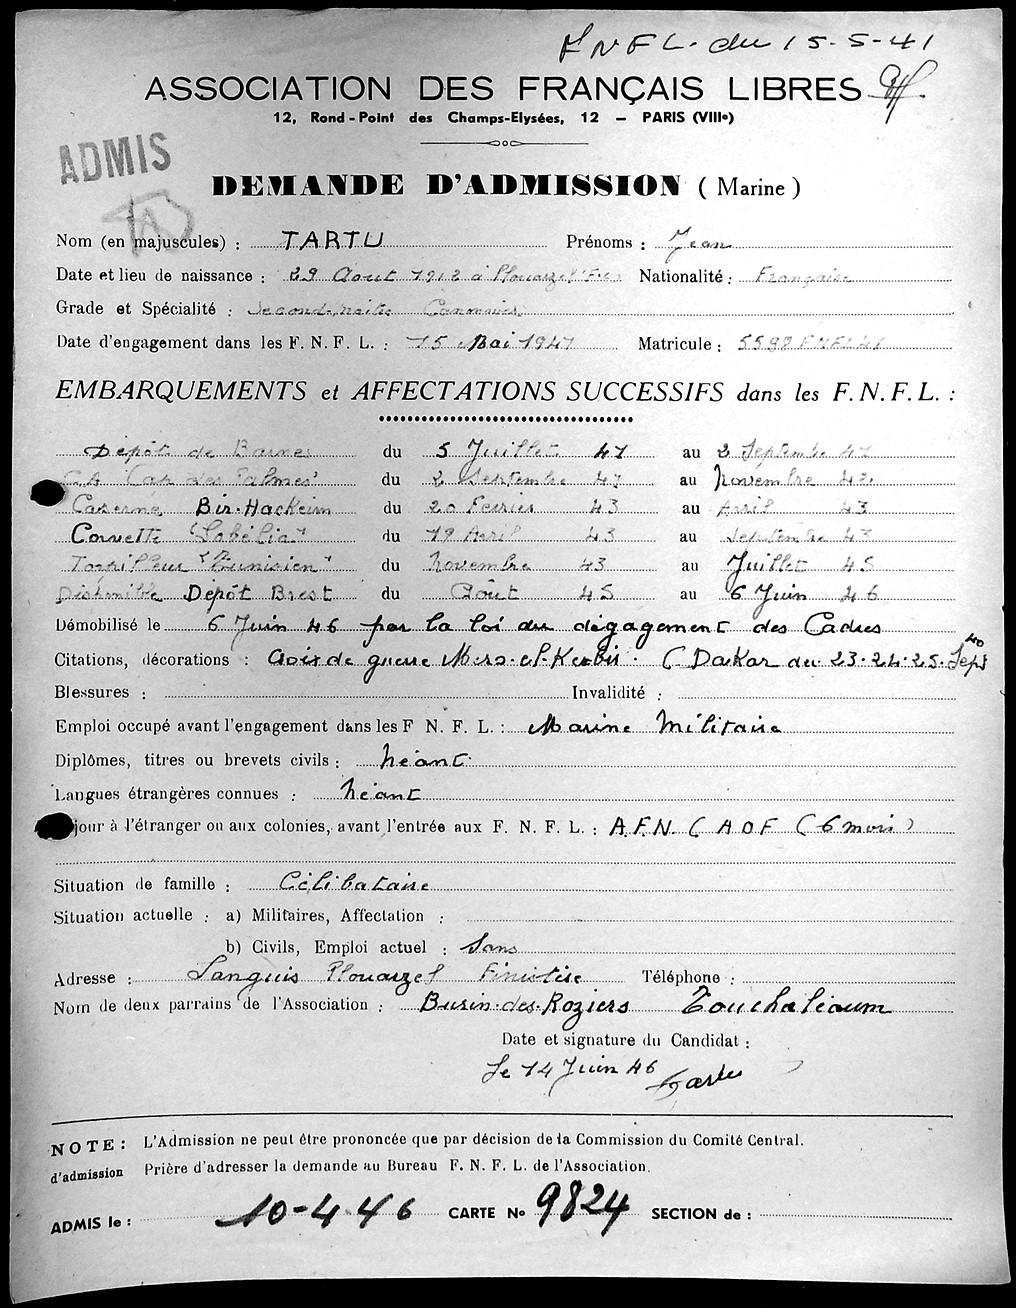 FNFL. du 15-5-41
ASSOCIATION DES FRANÇAIS LIBRES
12, Rond-Point des Champs-Elysées, 12 — PARIS (VIIIe)
ADMIS
DEMANDE D'ADMISSION (Marine)
Nom (en majuscules) : TARTU Prénoms : Jean
Date et lieu de naissance : 29 Aout 1912 à Plouarzel Nationalité : Française
Grade et Spécialité : Second-maître Canonnier
Date d'engagement dans les F. N. F. L. : 15 Mai 1941 Matricule : 5598 FNFL41
EMBARQUEMENTS et AFFECTATIONS SUCCESSIFS dans les F. N. F. L. :
Dépôt de Barnes du 5 Juillet 41 au 2 Septembre 41
"Cap des Palmes" du 2 Septembre 41 au Novembre 42
Caserne Bir-Hackeim du 20 Fevrier 43 au Avril 43
Corvette "Lobélia" du 19 Avril 43 au Septembre 43
Torpilleur "Le Tunisien" du Novembre 43 au Juillet 45
Disponible Dépôt Brest du Août 45 au 6 Juin 46
Démobilisé le 6 Juin 46 par la loi du dégagement des Cadres
Citations, décorations : Croix de guerre Mers-el-Kebir. ( Dakar du 23.24.25. Sept 40
Blessures : Invalidité :
Emploi occupé avant l'engagement dans les F N. F. L. : Marine Militaire
Diplômes, titres ou brevets civils : Néant
Langues étrangères connues : Néant
jour à l'étranger ou aux colonies, avant l'entrée aux F. N. F. L. : A.F.N. ( AOF ( 6 mois )
Situation de famille : Célibataire
Situation actuelle : a) Militaires, Affectation :
b) Civils, Emploi actuel : Sans
Adresse : Plouarzel Finistère Téléphone :
Nom de deux parrains de l'Association : Burin-des-Roziers Touchaleaum
Date et signature du Candidat :
Le 14 Juin 46 Tartu
NOTE : L'Admission ne peut être prononcée que par décision de la Commission du Comité Central.
d'admission Prière d'adresser la demande au Bureau F. N. F. L. de l'Association.
ADMIS le : 10-4-46 CARTE No 9824 SECTION de :